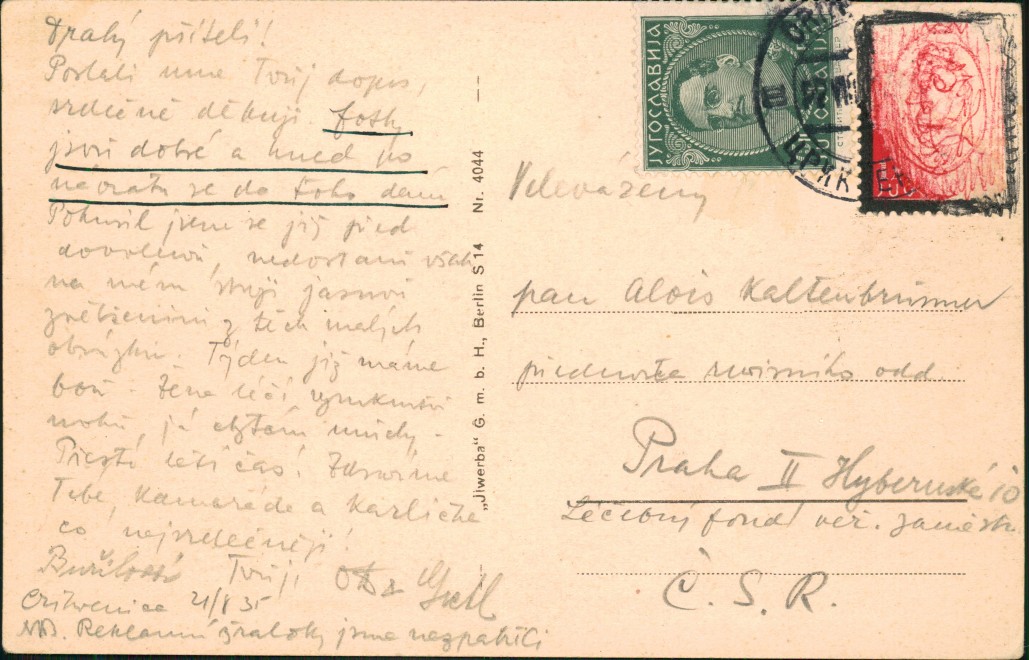 Drahý příteli!
Poslali mne Tvůj dopis,
srdečně děkuji. Fotky
jsou dobré a hned po
návratu se do toho dám
Pokusil jsem se již před
dovolenou, nedostanu však
na mém stroji jasnou
zvětšeninu z těch malých
obrázků. Týden již máme
- Žena léčí vymknutou
nohu, já chytám
Přesto letí čas! Zdravíme
Tebe, kamaráde a Karlička
co nejsrdečněji!
Tvůj
Crikvenica 21/8 35
NB. Reklamní žraloky jsme nespatřili
„Jiwerba" G. m. b. H., Berlin S 14 Nr. 4044
ЈУГОСЛАВИЈА
JUGOSLAVIJA
III
ЦРИК
Velevážený
pan Alois Kaltenbrunner
přednosta odd.
Praha II Hybernská 10
Léčebný fond veř. zaměst.
Č. S. R.